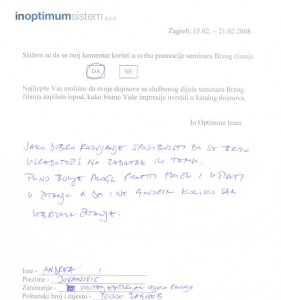 inoptimumsistem d.o.o.
Zagreb, 15.02. – 21.02.2008.
Slažem se da se moj komentar koristi u svrhu promocije seminara Brzog čitanja
DA NE
Najljepše Vas molimo da svoje dojmove sa službenog dijela seminara Brzog
čitanja zapišete ispod, kako bismo Vaše impresije uvrstili u katalog dojmova.
In Optimum team
JAKO DOBRO RAZVIJANJE SPOSOBNOSTI DA SE BRZO
USREDOTOČIŠ NA ZADATAK ILI TEMU.
PUNO BOLJE MOGU PRATITI I UŽIVATI
U ČITANJU A DA I NE GOVORIM KOLIKO SAM
UBRZALA ČITANJE.
Ime - ANDREA
Prezime - JOVANOVIĆ
Zanimanje -
Poštanski broj i mjesto - 10000 ZAGREB